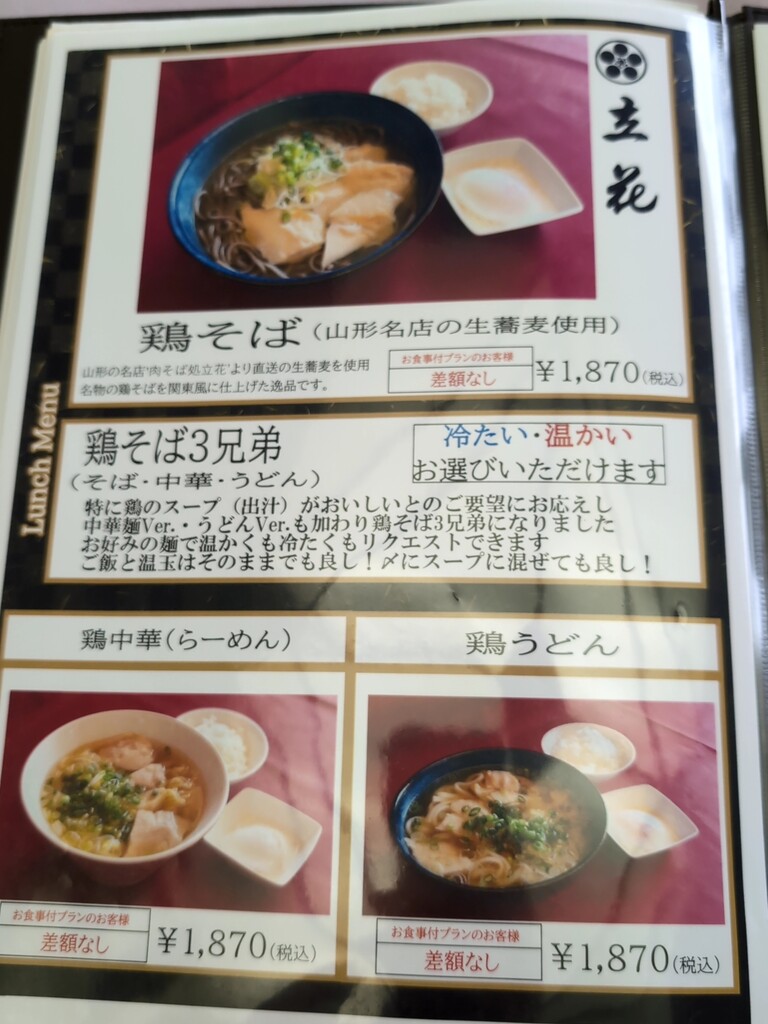 立花
鶏そば(山形名店の生蕎麦使用)
山形の名店"肉そば処立花"より直送の生蕎麦を使用
名物の鶏そばを関東風に仕上げた逸品です。
お食事付プランのお客様
差額なし
¥1,870(税込)
Lunch Menu
鶏そば3兄弟
(そば・中華・うどん)
冷たい・温かい
お選びいただけます
特に鶏のスープ(出汁)がおいしいとのご要望にお応えし
中華麺Ver.・うどんVer.も加わり鶏そば3兄弟になりました
お好みの麺で温かくも冷たくもリクエストできます
ご飯と温玉はそのままでも良し!〆にスープに混ぜても良し!
鶏中華(らーめん)
お食事付プランのお客様
差額なし
¥1,870(税込)
鶏うどん
お食事付プランのお客様
差額なし
¥1,870(税込)